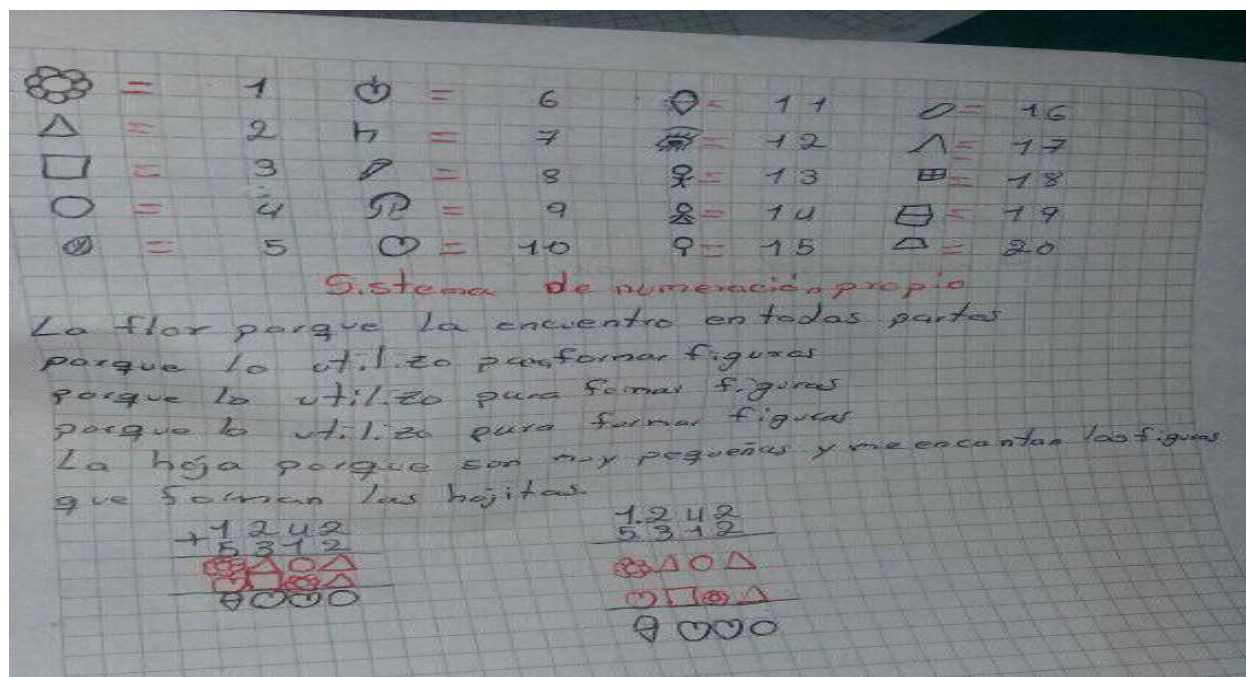 = 1 = 6 = 11 = 16
= 2 = 7 = 12 = 17
= 3 = 8 = 13 = 18
= 4 = 9 = 14 = 19
= 5 = 10 = 15 = 20
Sistema de numeración propio
La flor porque la encuentro en todas partes
porque lo utilizo para formar figuras
porque lo utilizo para formar figuras
porque lo utilizo para formar figuras
La hoja porque son muy pequeñas y me encantan las figuras
que forman las hojitas.
+1242
5312
1.242
5312